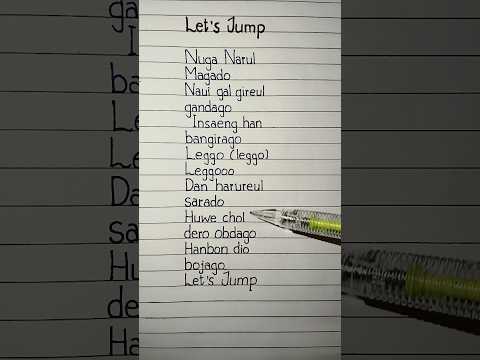 Let's Jump
Nuga Narul
Magado
Naui gal gireul
gandago
Insaeng han
bangirago
Leggo (leggo)
Leggooo
Dan harureul
sarado
Huwe chol
dero obdago
Hanbon dio
bojago
Let's Jump